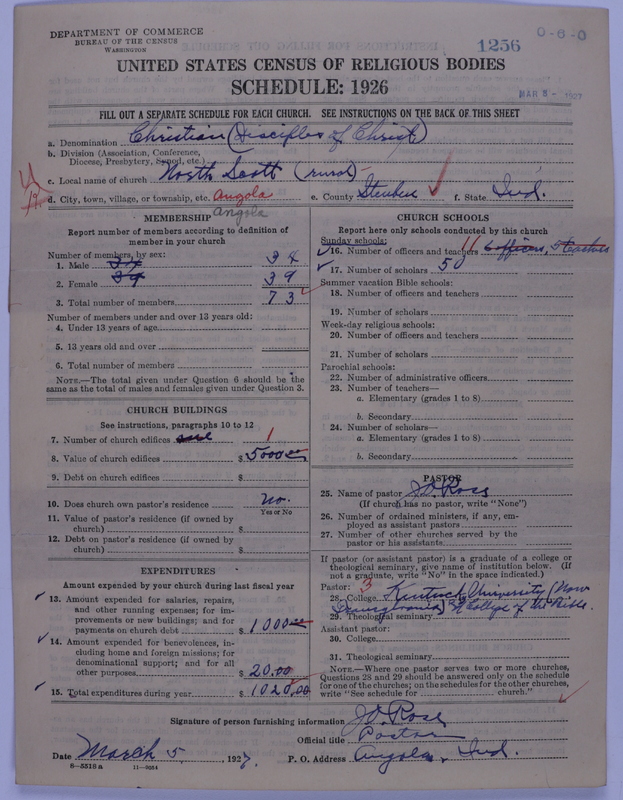 DEPARTMENT OF COMMERCE
BUREAU OF THE CENSUS
WASHINGTON
1256
0-6-0
MAR 8 - 1927
UNITED STATES CENSUS OF RELIGIOUS BODIES
SCHEDULE: 1926
FILL OUT A SEPARATE SCHEDULE FOR EACH CHURCH. SEE INSTRUCTIONS ON THE BACK OF THIS SHEET
a. Denomination Christian (Disciples of Christ)
b. Division (Association, Conference, Diocese, Presbytery, Synod, etc.)
c. Local name of church North Scott (rural)
d. City, town, village, or township, etc. Angola e. County Steuben f. State Ind.
Angola
MEMBERSHIP
Report number of members according to definition of
member in your church
Number of members, by sex:
1. Male 34 34
2. Female 39 39
3. Total number of members 73
Number of members under and over 13 years old:
4. Under 13 years of age
5. 13 years old and over
6. Total number of members
NOTE.—The total given under Question 6 should be the
same as the total of males and females given under Question 3.
CHURCH BUILDINGS
See instructions, paragraphs 10 to 12
7. Number of church edifices one 1
8. Value of church edifices $ 5000
9. Debt on church edifices $
10. Does church own pastor's residence No.
Yes or No
11. Value of pastor's residence (if owned by
church) $
12. Debt on pastor's residence (if owned by
church) $
EXPENDITURES
Amount expended by your church during last fiscal year
13. Amount expended for salaries, repairs,
and other running expenses; for im-
provements or new buildings; and for
payments on church debt $ 1000
14. Amount expended for benevolences, in-
cluding home and foreign missions; for
denominational support; and for all
other purposes $ 20.00
15. Total expenditures during year $ 1020.00
CHURCH SCHOOLS
Report here only schools conducted by this church
Sunday schools:
16. Number of officers and teachers 11 6 officers, 5 teachers
17. Number of scholars 50
Summer vacation Bible schools:
18. Number of officers and teachers
19. Number of scholars
Week-day religious schools:
20. Number of officers and teachers
21. Number of scholars
Parochial schools:
22. Number of administrative officers
23. Number of teachers—
a. Elementary (grades 1 to 8)
b. Secondary
24. Number of scholars—
a. Elementary (grades 1 to 8)
b. Secondary
PASTOR
25. Name of pastor J. O. Rose
(If church has no pastor, write "None")
26. Number of ordained ministers, if any, em-
ployed as assistant pastors
27. Number of other churches served by the
pastor or his assistants
If pastor (or assistant pastor) is a graduate of a college or
theological seminary, give name of institution below. (If
not a graduate, write "No" in the space indicated.)
Pastor: 3
28. College Kentucky University (Now
Transylvania) & College of the Bible.
29. Theological seminary
Assistant pastor:
30. College
31. Theological seminary
NOTE.—Where one pastor serves two or more churches,
Questions 28 and 29 should be answered only on the schedule
for one of the churches; on the schedules for the other churches,
write "See schedule for church."
Signature of person furnishing information J. O. Rose
Official title Pastor
Date March 5, 1927. P. O. Address Angola, Ind.
8-5518 a 11-9034